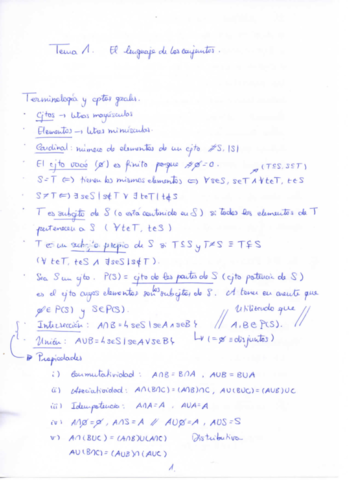 Tema 1. El lenguaje de los conjuntos.
Terminología y cptos grales.
· Cjtos → letras mayúsculas
· Elementos → letras minúsculas.
· Cardinal: número de elementos de un cjto #S, |S|
· El cjto vacío (∅) es finito porque #∅=0.
(T⊆S, S⊆T)
· S=T ⇔ tienen los mismos elementos ⇔ ∀s∈S, s∈T ∧ ∀t∈T, t∈S
· S≠T ⇔ ∃s∈S | s∉T ∨ ∃t∈T | t∉S
· T es subcjto de S (o está contenido en S) si todos los elementos de T
pertenecen a S (∀t∈T, t∈S)
· T es un subcjto propio de S si T⊆S y T≠S ≡ T⊊S
(∀t∈T, t∈S ∧ ∃s∈S | s∉T).
· Sea S un cjto. P(S) = cjto de las partes de S (cjto potencia de S)
es el cjto cuyos elementos son los subcjtos de S. A tener en cuenta que
∅∈P(S) y S∈P(S). Utilizando que
· Intersección: A∩B = {s∈S | s∈A ∧ s∈B} // A,B∈P(S).
· Unión: A∪B = {s∈S | s∈A ∨ s∈B} ↳ (=∅ ≡ disjuntos)
Propiedades
i) Conmutatividad: A∩B = B∩A, A∪B = B∪A
ii) Asociatividad: A∩(B∩C) = (A∩B)∩C, A∪(B∪C) = (A∪B)∪C
iii) Idempotencia: A∩A=A, A∪A=A
iv) A∩∅=∅, A∩S=A // A∪∅=A, A∪S=S
v) A∩(B∪C) = (A∩B)∪(A∩C) Distributiva
A∪(B∩C) = (A∪B)∩(A∪C)
1